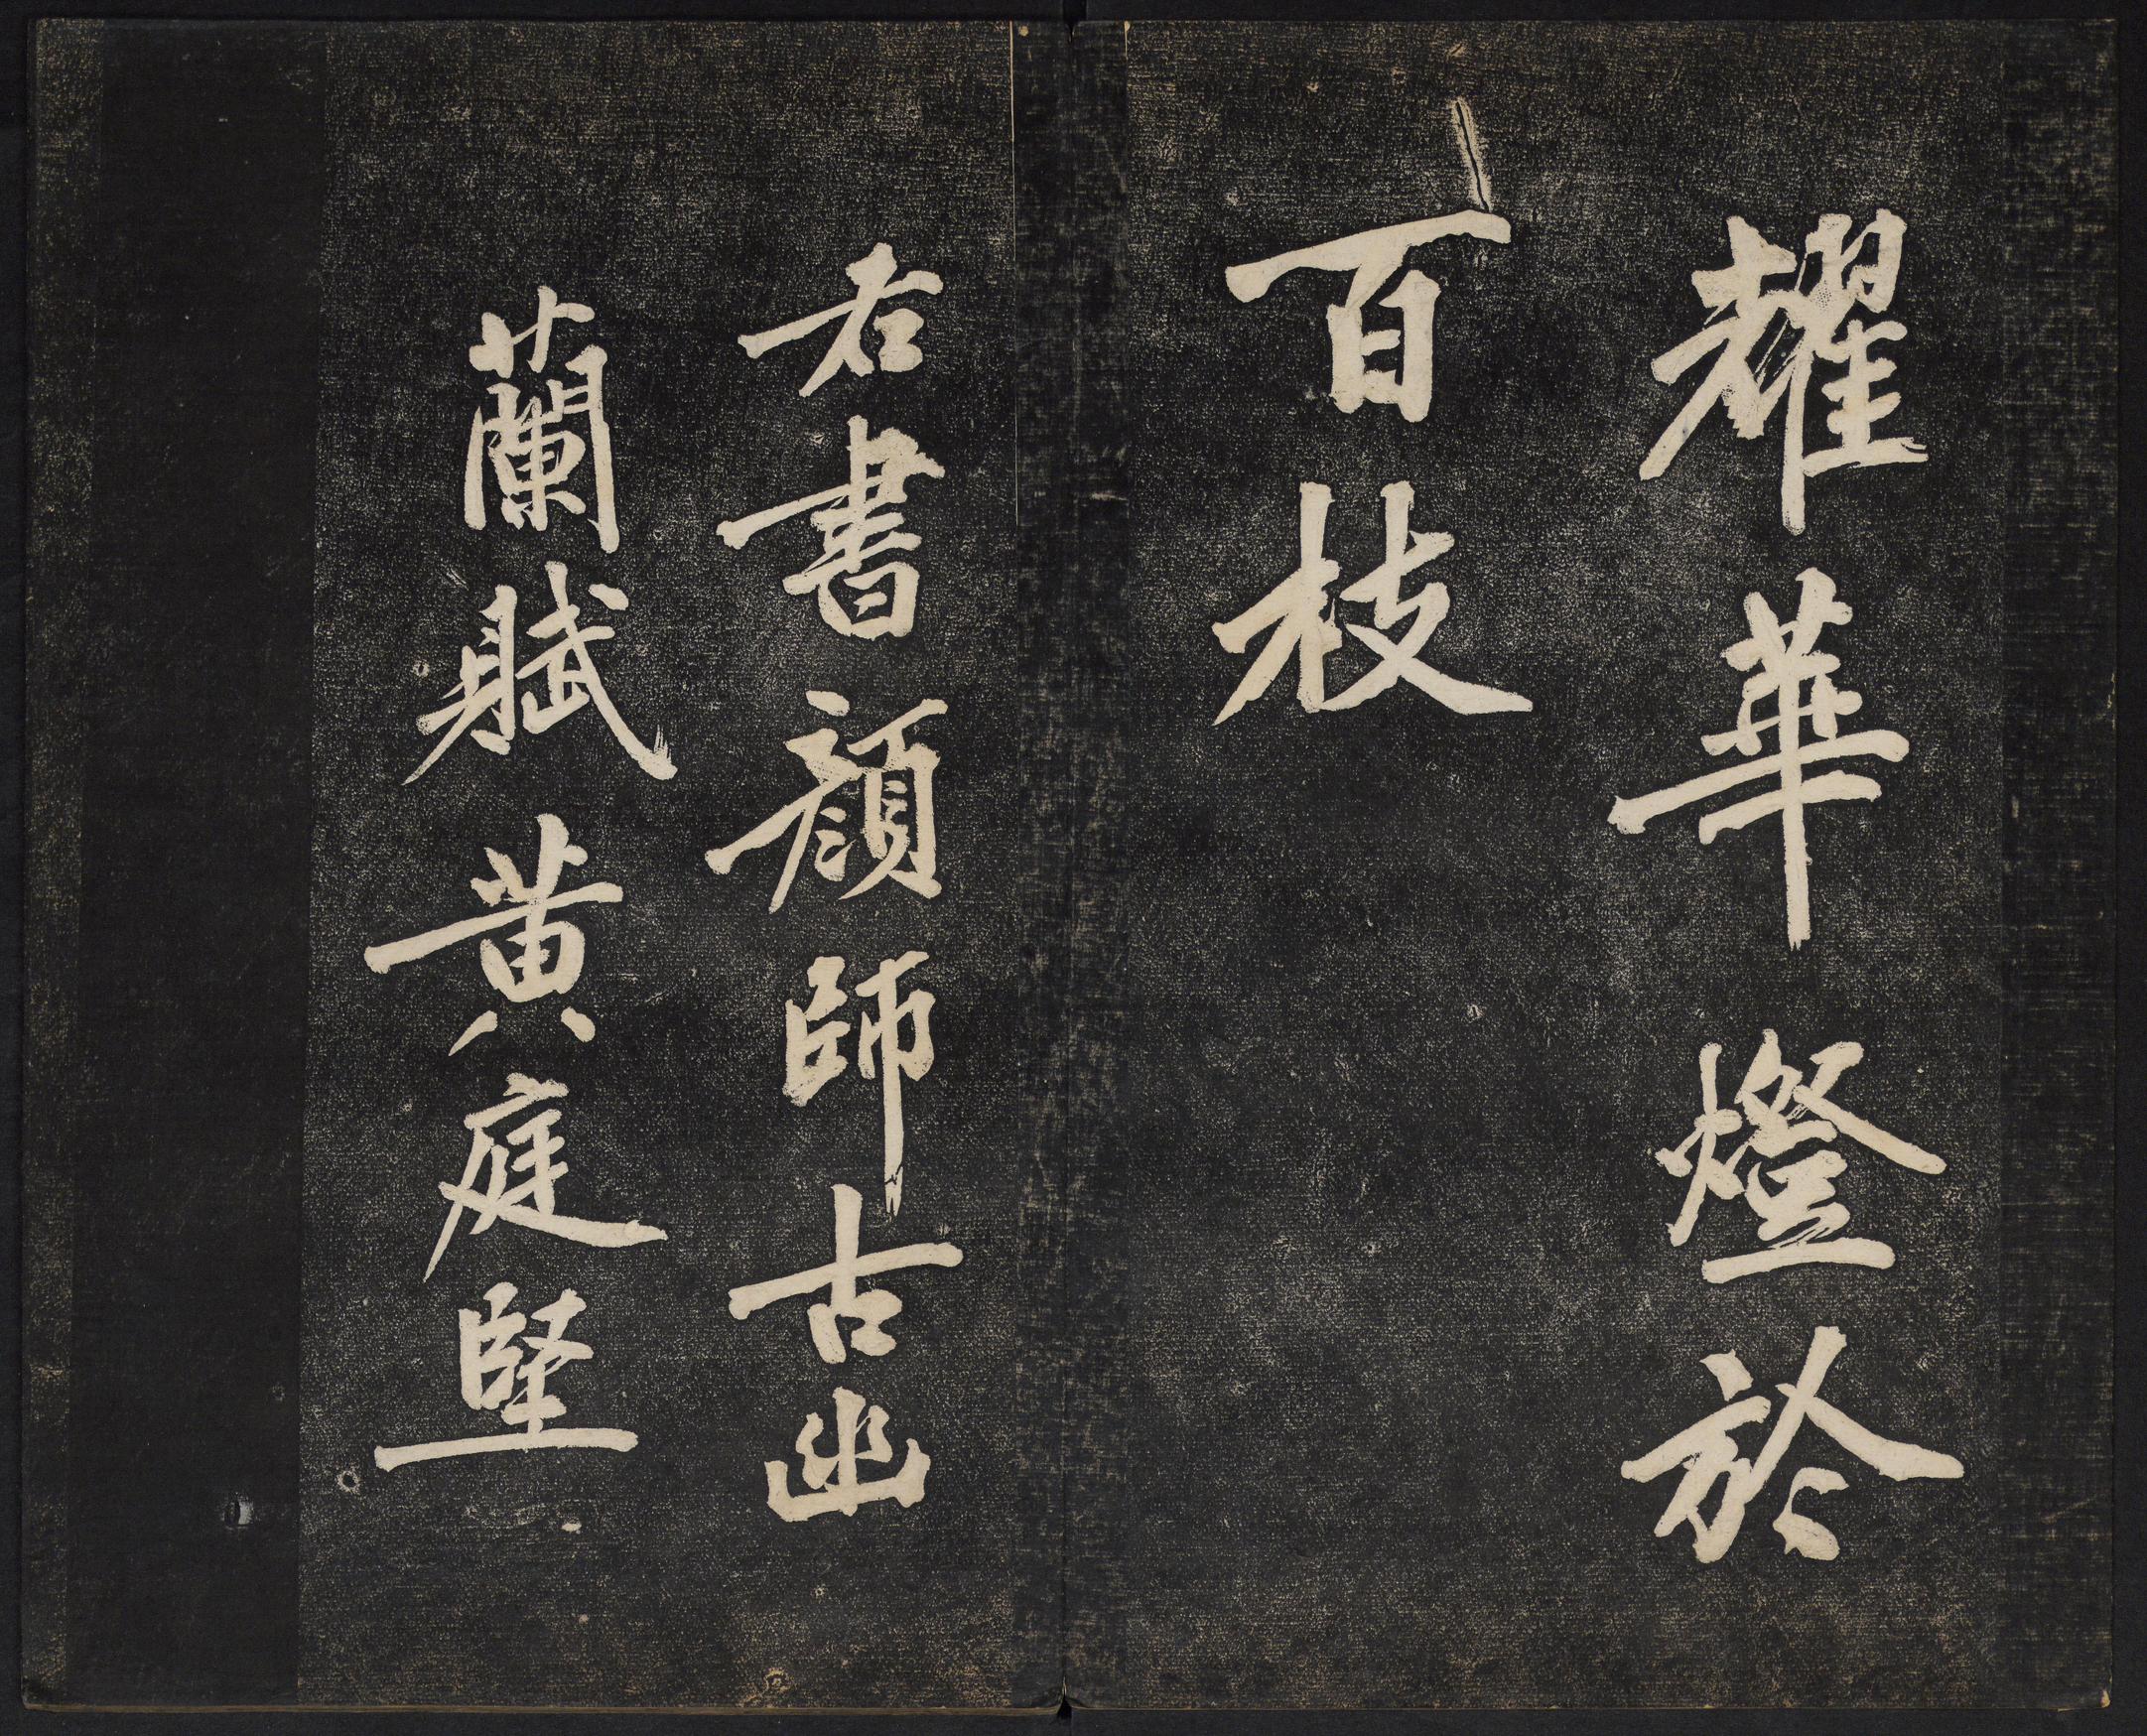 耀華燈於
百枝
右書顔師古幽
蘭賦黄庭堅